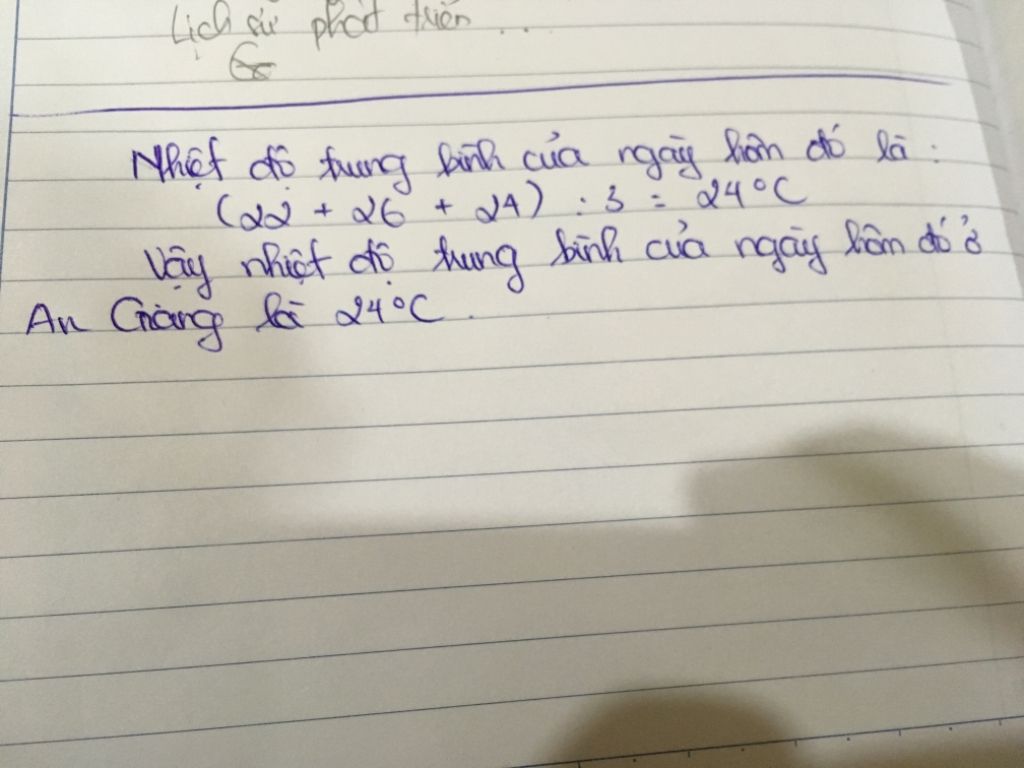 Lịch sử phát triển ...
Nhiệt độ trung bình của ngày hôm đó là :
(22 + 26 + 24) : 3 = 24°C
Vậy nhiệt độ trung bình của ngày hôm đó ở
An Giang là 24°C.